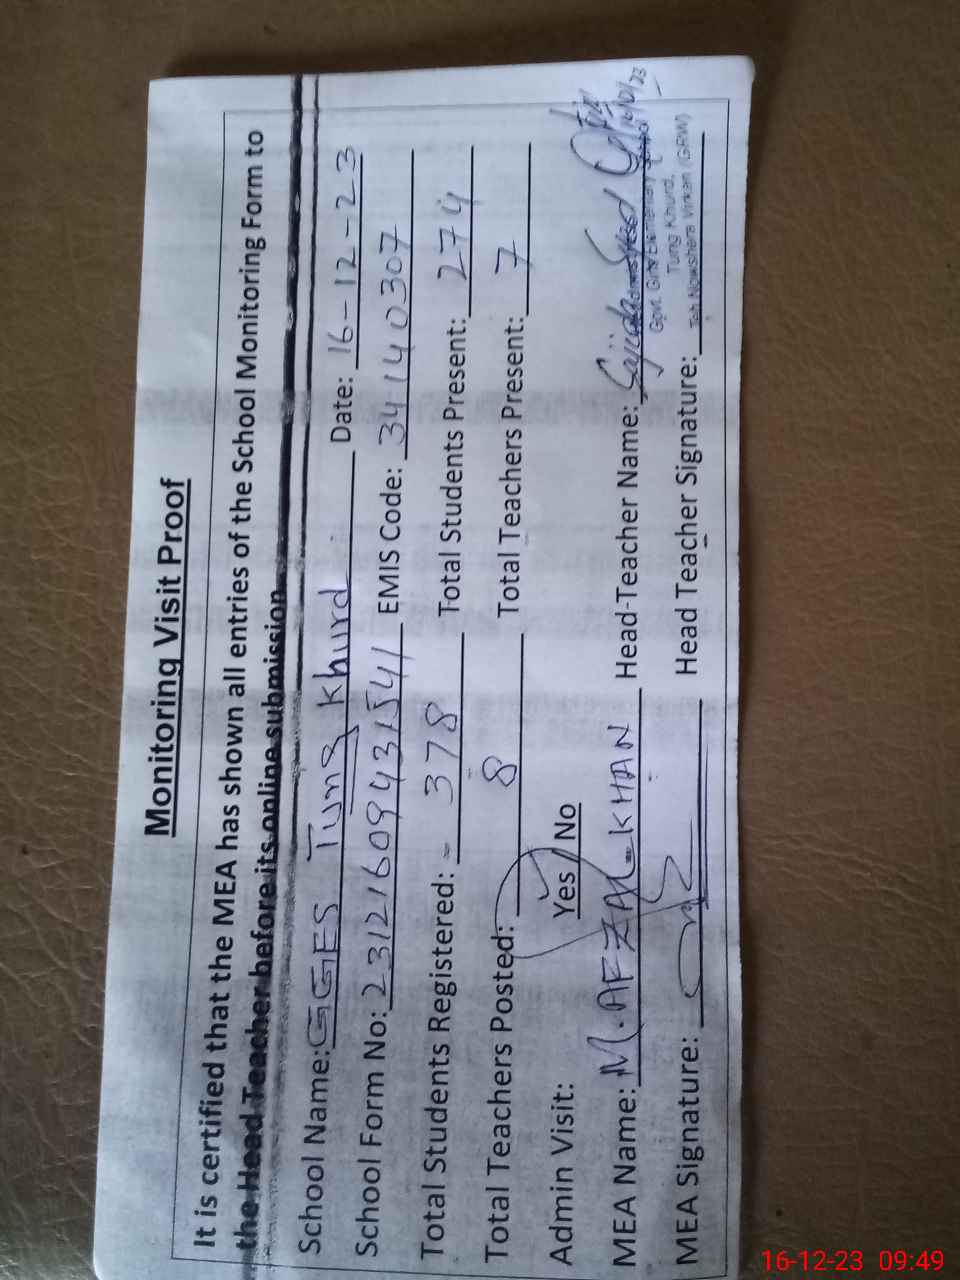 Monitoring Visit Proof
It is certified that the MEA has shown all entries of the School Monitoring Form to
the Head Teacher before its online submission.
School Name: GGES Tung Khurd Date: 16-12-23
School Form No: 23121609431541 EMIS Code: 34140307
Total Students Registered: 378 Total Students Present: 274
Total Teachers Posted: 8 Total Teachers Present: 7
Admin Visit: Yes / No
MEA Name: M. AFZAL KHAN Head-Teacher Name: Sajida
Govt. Girls Elementary School
Tung Khurd,
MEA Signature: Head Teacher Signature:
Teh Nowshera Virkan (GRW)
16-12-23 09:49